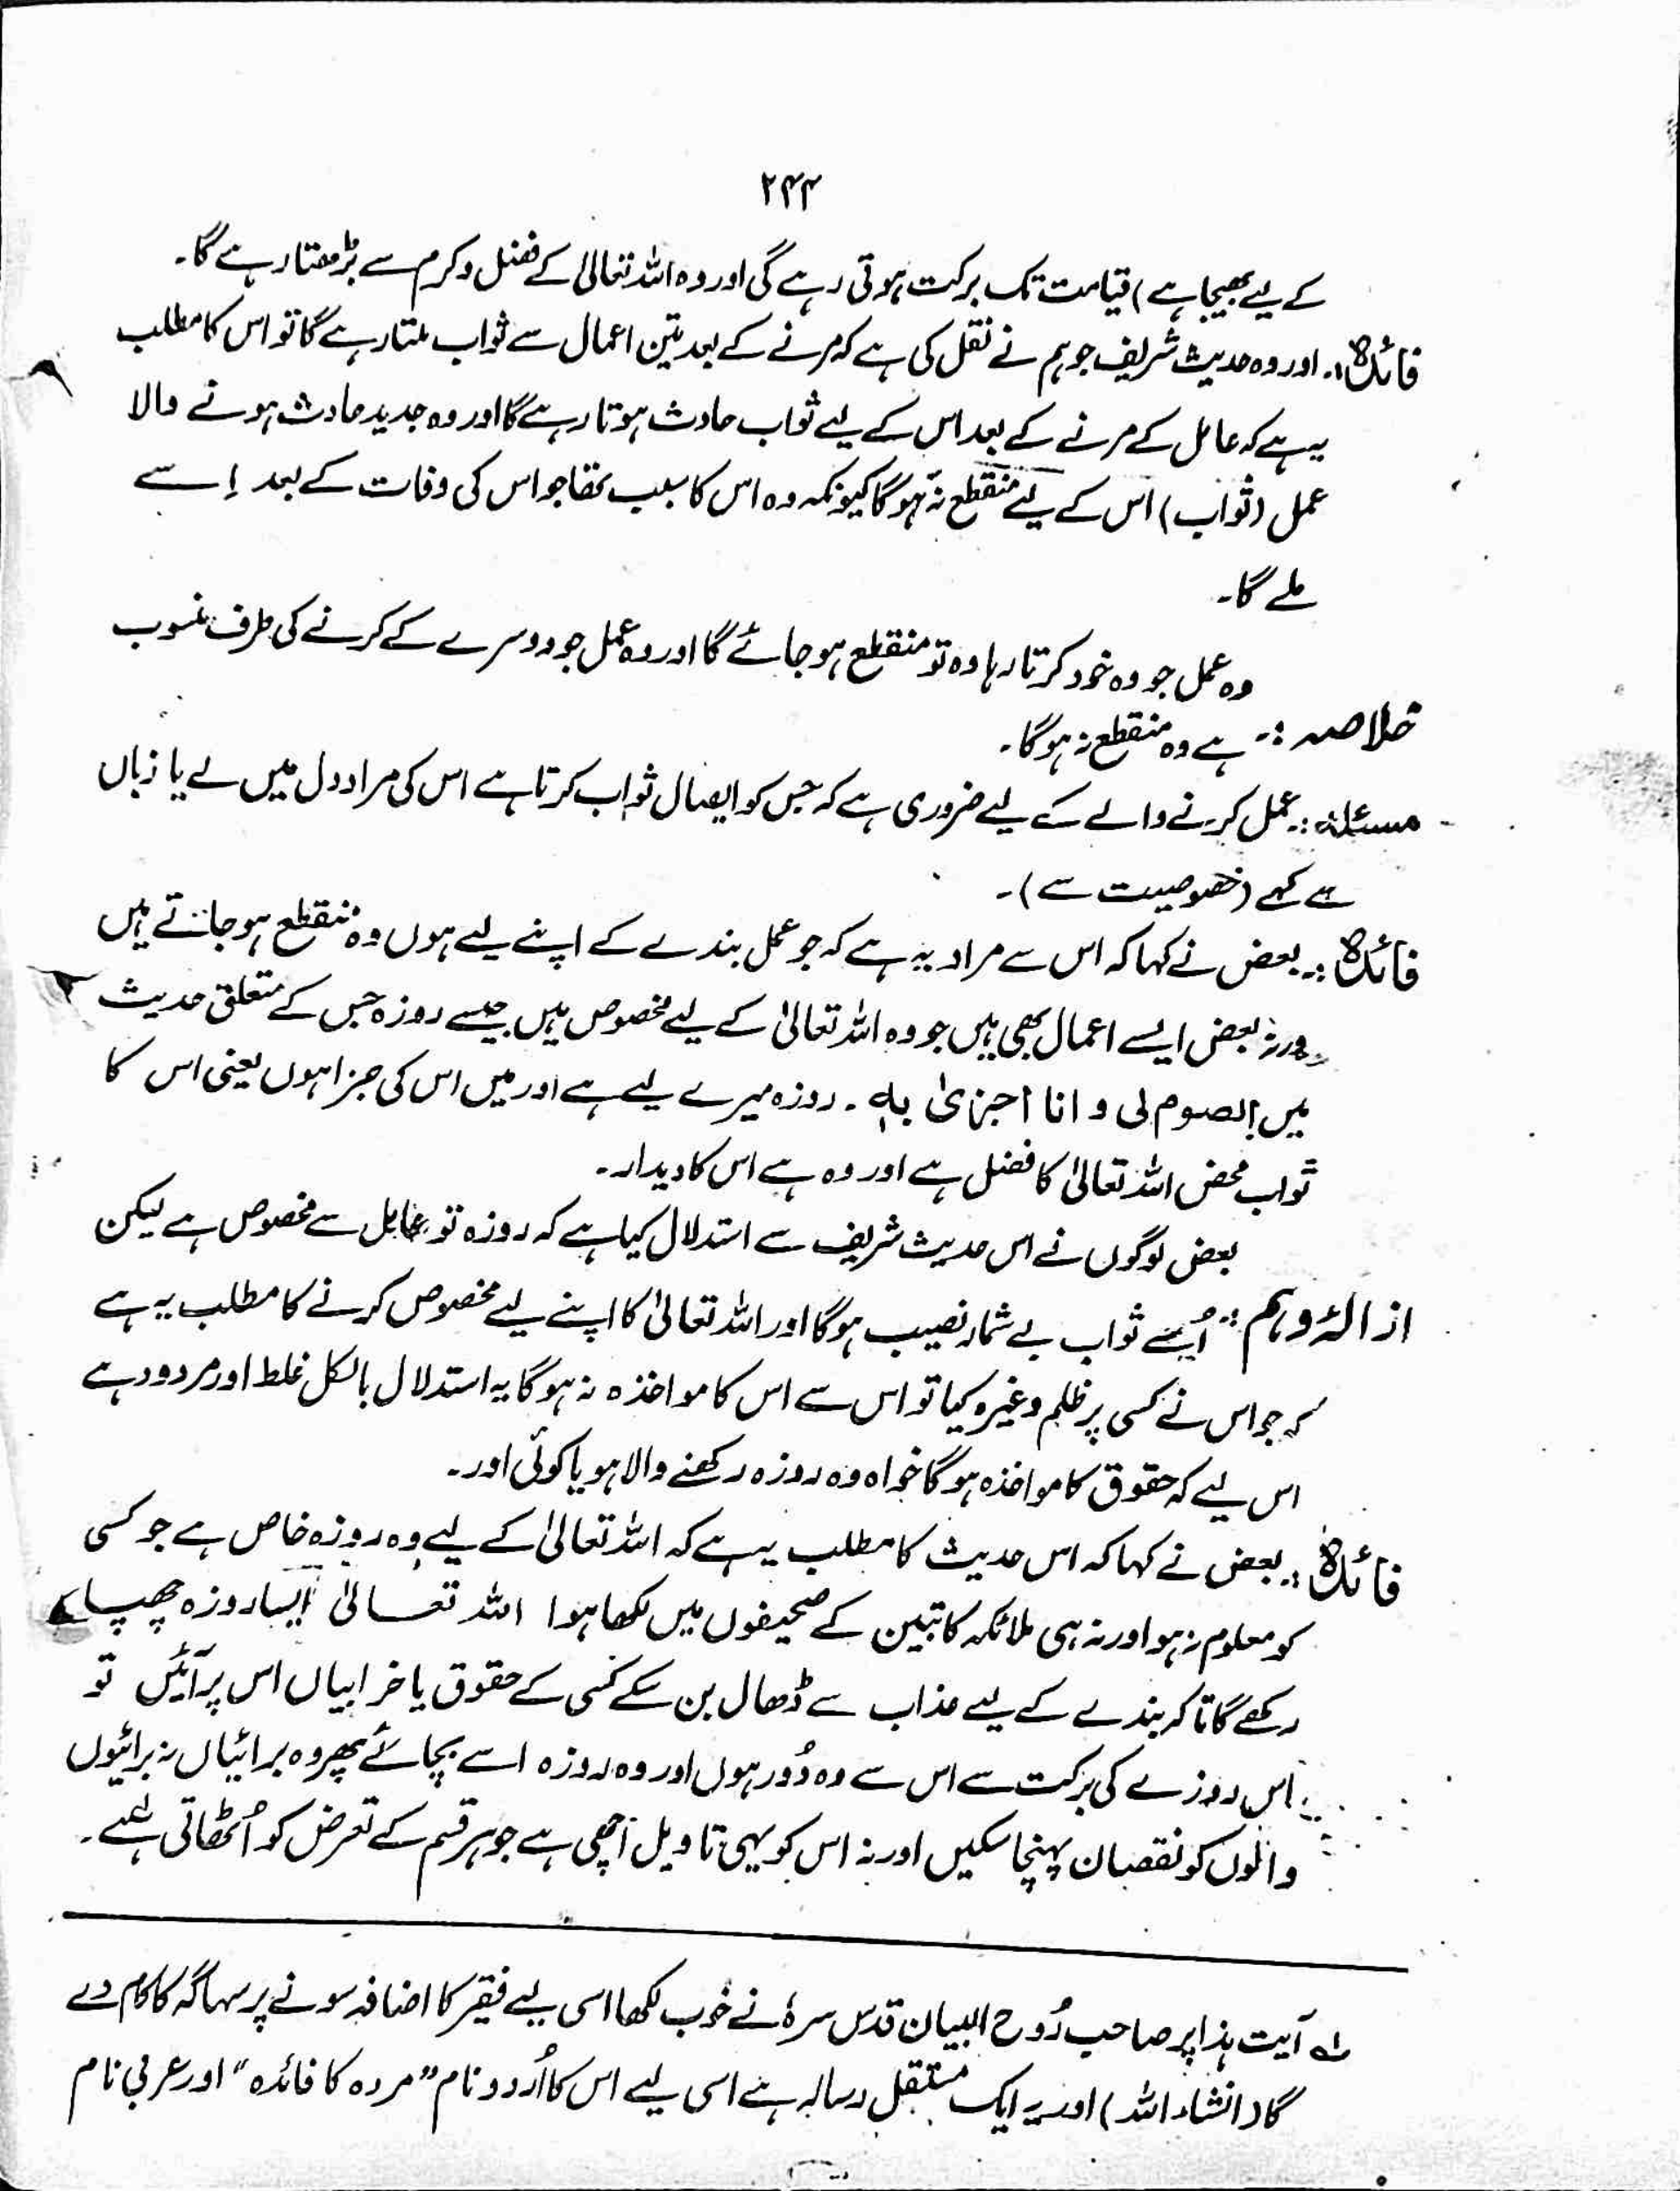 ۲۴۴
کے لیے بھیجا ہے) قیامت تک برکت ہوتی رہے گی اور وہ اللہ تعالیٰ کے فضل و کرم سے بڑھتا رہے گا۔
فائدہ:۔ اور وہ حدیث شریف جو ہم نے نقل کی ہے کہ مرنے کے بعد تین اعمال سے ثواب ملتا رہے گا تو اس کا مطلب
یہ ہے کہ عامل کے مرنے کے بعد اس کے لیے ثواب حادث ہوتا رہے گا اور وہ جدید حادث ہونے والا
عمل (ثواب) اس کے لیے منقطع نہ ہوگا کیونکہ وہ اس کا سبب تھا جو اس کی وفات کے بعد اِسے
ملے گا۔
وہ عمل جو وہ خود کرتا رہا وہ تو منقطع ہو جائے گا اور وہ عمل جو دوسرے کے کرنے کی طرف منسوب
خلاصہ:۔ ہے وہ منقطع نہ ہوگا۔
مسئلہ:۔ عمل کرنے والے کے لیے ضروری ہے کہ جس کو ایصال ثواب کرتا ہے اس کی مراد دل میں لے یا زباں
سے کہے (خصوصیت سے)۔
فائدہ:۔ بعض نے کہا کہ اس سے مراد یہ ہے کہ جو عمل بندے کے اپنے لیے ہوں وہ منقطع ہو جاتے ہیں
ورنہ بعض ایسے اعمال بھی ہیں جو وہ اللہ تعالیٰ کے لیے مخصوص ہیں جیسے روزہ جس کے متعلق حدیث
میں الصوم لی و انا اجزیٰ بہ۔ روزہ میرے لیے ہے اور میں اس کی جزا ہوں یعنی اس کا
ثواب محض اللہ تعالیٰ کا فضل ہے اور وہ ہے اس کا دیدار۔
بعض لوگوں نے اس حدیث شریف سے استدلال کیا ہے کہ روزہ تو عامل سے مخصوص ہے لیکن
ازالۂ وہم:۔ اُسے ثواب بے شمار نصیب ہوگا اور اللہ تعالیٰ کا اپنے لیے مخصوص کرنے کا مطلب یہ ہے
کہ جو اس نے کسی پر ظلم وغیرہ کیا تو اس سے اس کا مواخذہ نہ ہوگا یہ استدلال بالکل غلط اور مردود ہے
اس لیے کہ حقوق کا مواخذہ ہوگا خواہ وہ روزہ رکھنے والا ہو یا کوئی اور۔
فائدہ:۔ بعض نے کہا کہ اس حدیث کا مطلب یہ ہے کہ اللہ تعالیٰ کے لیے وہ روزہ خاص ہے جو کسی
کو معلوم نہ ہو اور نہ ہی ملائکہ کاتبین کے صحیفوں میں لکھا ہوا اللہ تعالیٰ ایسا روزہ چھپا کے
رکھے گا تاکہ بندے کے لیے عذاب سے ڈھال بن سکے کسی کے حقوق یا خرابیاں اس پر آئیں تو
اس روزے کی برکت سے اس سے وہ دُور ہوں اور وہ روزہ اسے بچائے پھر وہ برائیاں نہ برائیوں
والوں کو نقصان پہنچا سکیں اور نہ اس کو یہی تاویل اچھی ہے جو ہر قسم کے تعرض کو اُٹھاتی ہے۔
لہ آیت ہذا پر صاحب رُوح البیان قدس سرہٗ نے خوب لکھا اسی لیے فقیر کا اضافہ سونے پر سہاگہ کا کام دے
گا (انشاء اللہ) اور یہ ایک مستقل رسالہ ہے اسی لیے اس کا اُردو نام "مردہ کا فائدہ" اور عربی نام